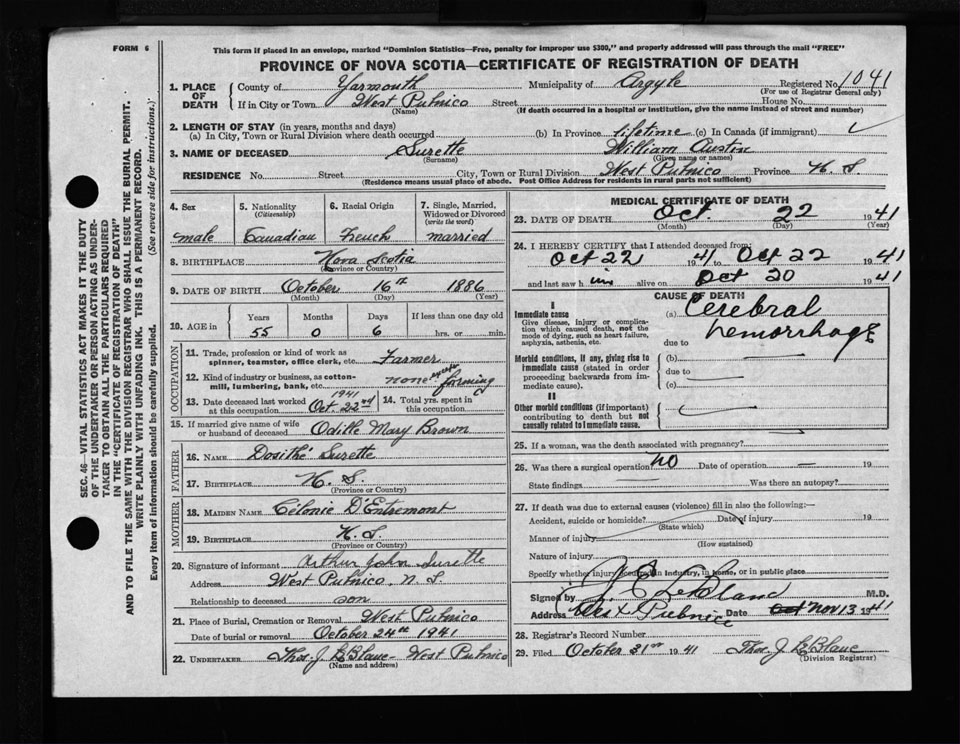 FORM 6
This form if placed in an envelope, marked "Dominion Statistics—Free, penalty for improper use $300," and properly addressed will pass through the mail "FREE"
PROVINCE OF NOVA SCOTIA—CERTIFICATE OF REGISTRATION OF DEATH
1. PLACE OF DEATH County of Yarmouth Municipality of Argyle Registered No. 1041
(For use of Registrar General only)
If in City or Town West Pubnico Street House No.
(Name) (If death occurred in a hospital or institution, give the name instead of street and number)
2. LENGTH OF STAY (in years, months and days)
(a) In City, Town or Rural Division where death occurred (b) In Province lifetime (c) In Canada (if immigrant)
3. NAME OF DECEASED Surette William Austin
(Surname) (Given name or names)
RESIDENCE No. Street City, Town or Rural Division West Pubnico Province N. S.
(Residence means usual place of abode. Post Office Address for residents in rural parts not sufficient)
SEC. 46—VITAL STATISTICS ACT MAKES IT THE DUTY
OF THE UNDERTAKER OR PERSON ACTING AS UNDER-
TAKER TO OBTAIN ALL THE PARTICULARS REQUIRED
IN THE "CERTIFICATE OF REGISTRATION OF DEATH"
AND TO FILE THE SAME WITH THE DIVISION REGISTRAR WHO SHALL ISSUE THE BURIAL PERMIT.
WRITE PLAINLY WITH UNFADING INK. THIS IS A PERMANENT RECORD.
Every item of information should be carefully supplied. (See reverse side for instructions.)
4. Sex 5. Nationality 6. Racial Origin 7. Single, Married,
(Citizenship) Widowed or Divorced
(write the word)
male Canadian French married
8. BIRTHPLACE Nova Scotia
(Province or Country)
9. DATE OF BIRTH October 16th 1886
(Month) (Day) (Year)
10. AGE in Years Months Days If less than one day old
55 0 6 hrs. or min.
OCCUPATION
11. Trade, profession or kind of work as
spinner, teamster, office clerk, etc. Farmer
12. Kind of industry or business, as cotton-
mill, lumbering, bank, etc. none except farming
13. Date deceased last worked at this occupation Oct. 22nd 1941 14. Total yrs. spent in this occupation
15. If married give name of wife
or husband of deceased Odille Mary Brown
FATHER
16. NAME Dosithé Surette
17. BIRTHPLACE N. S.
(Province or Country)
MOTHER
18. MAIDEN NAME Célonie D'Entremont
19. BIRTHPLACE N. S.
(Province or Country)
20. Signature of informant Arthur John Surette
Address West Pubnico, N. S.
Relationship to deceased son
21. Place of Burial, Cremation or Removal West Pubnico
Date of burial or removal October 24th 1941
22. UNDERTAKER Thos. J. LeBlanc - West Pubnico
(Name and address)
MEDICAL CERTIFICATE OF DEATH
23. DATE OF DEATH Oct. 22 1941
(Month) (Day) (Year)
24. I HEREBY CERTIFY that I attended deceased from:
Oct 22 1941 to Oct 22 1941
and last saw him alive on Oct 20 1941
CAUSE OF DEATH
I
Immediate cause (a) Cerebral hemorrhage
Give disease, injury or complication which caused death, not the mode of dying, such as heart failure, asphyxia, asthenia, etc.
due to
Morbid conditions, if any, giving rise to immediate cause (stated in order proceeding backwards from immediate cause).
(b)
due to
(c)
II
Other morbid conditions (if important) contributing to death but not causally related to immediate cause.
25. If a woman, was the death associated with pregnancy?
26. Was there a surgical operation no Date of operation — 19
State findings Was there an autopsy?
27. If death was due to external causes (violence) fill in also the following:—
Accident, suicide or homicide? Date of injury 19
(State which)
Manner of injury
(How sustained)
Nature of injury
Specify whether injury occurred in industry, in home, or in public place
Signed by LeBlanc M.D.
Address West Pubnico Date Oct Nov 13 1941
28. Registrar's Record Number
29. Filed October 31st 1941 Thos. J. LeBlanc
(Division Registrar)